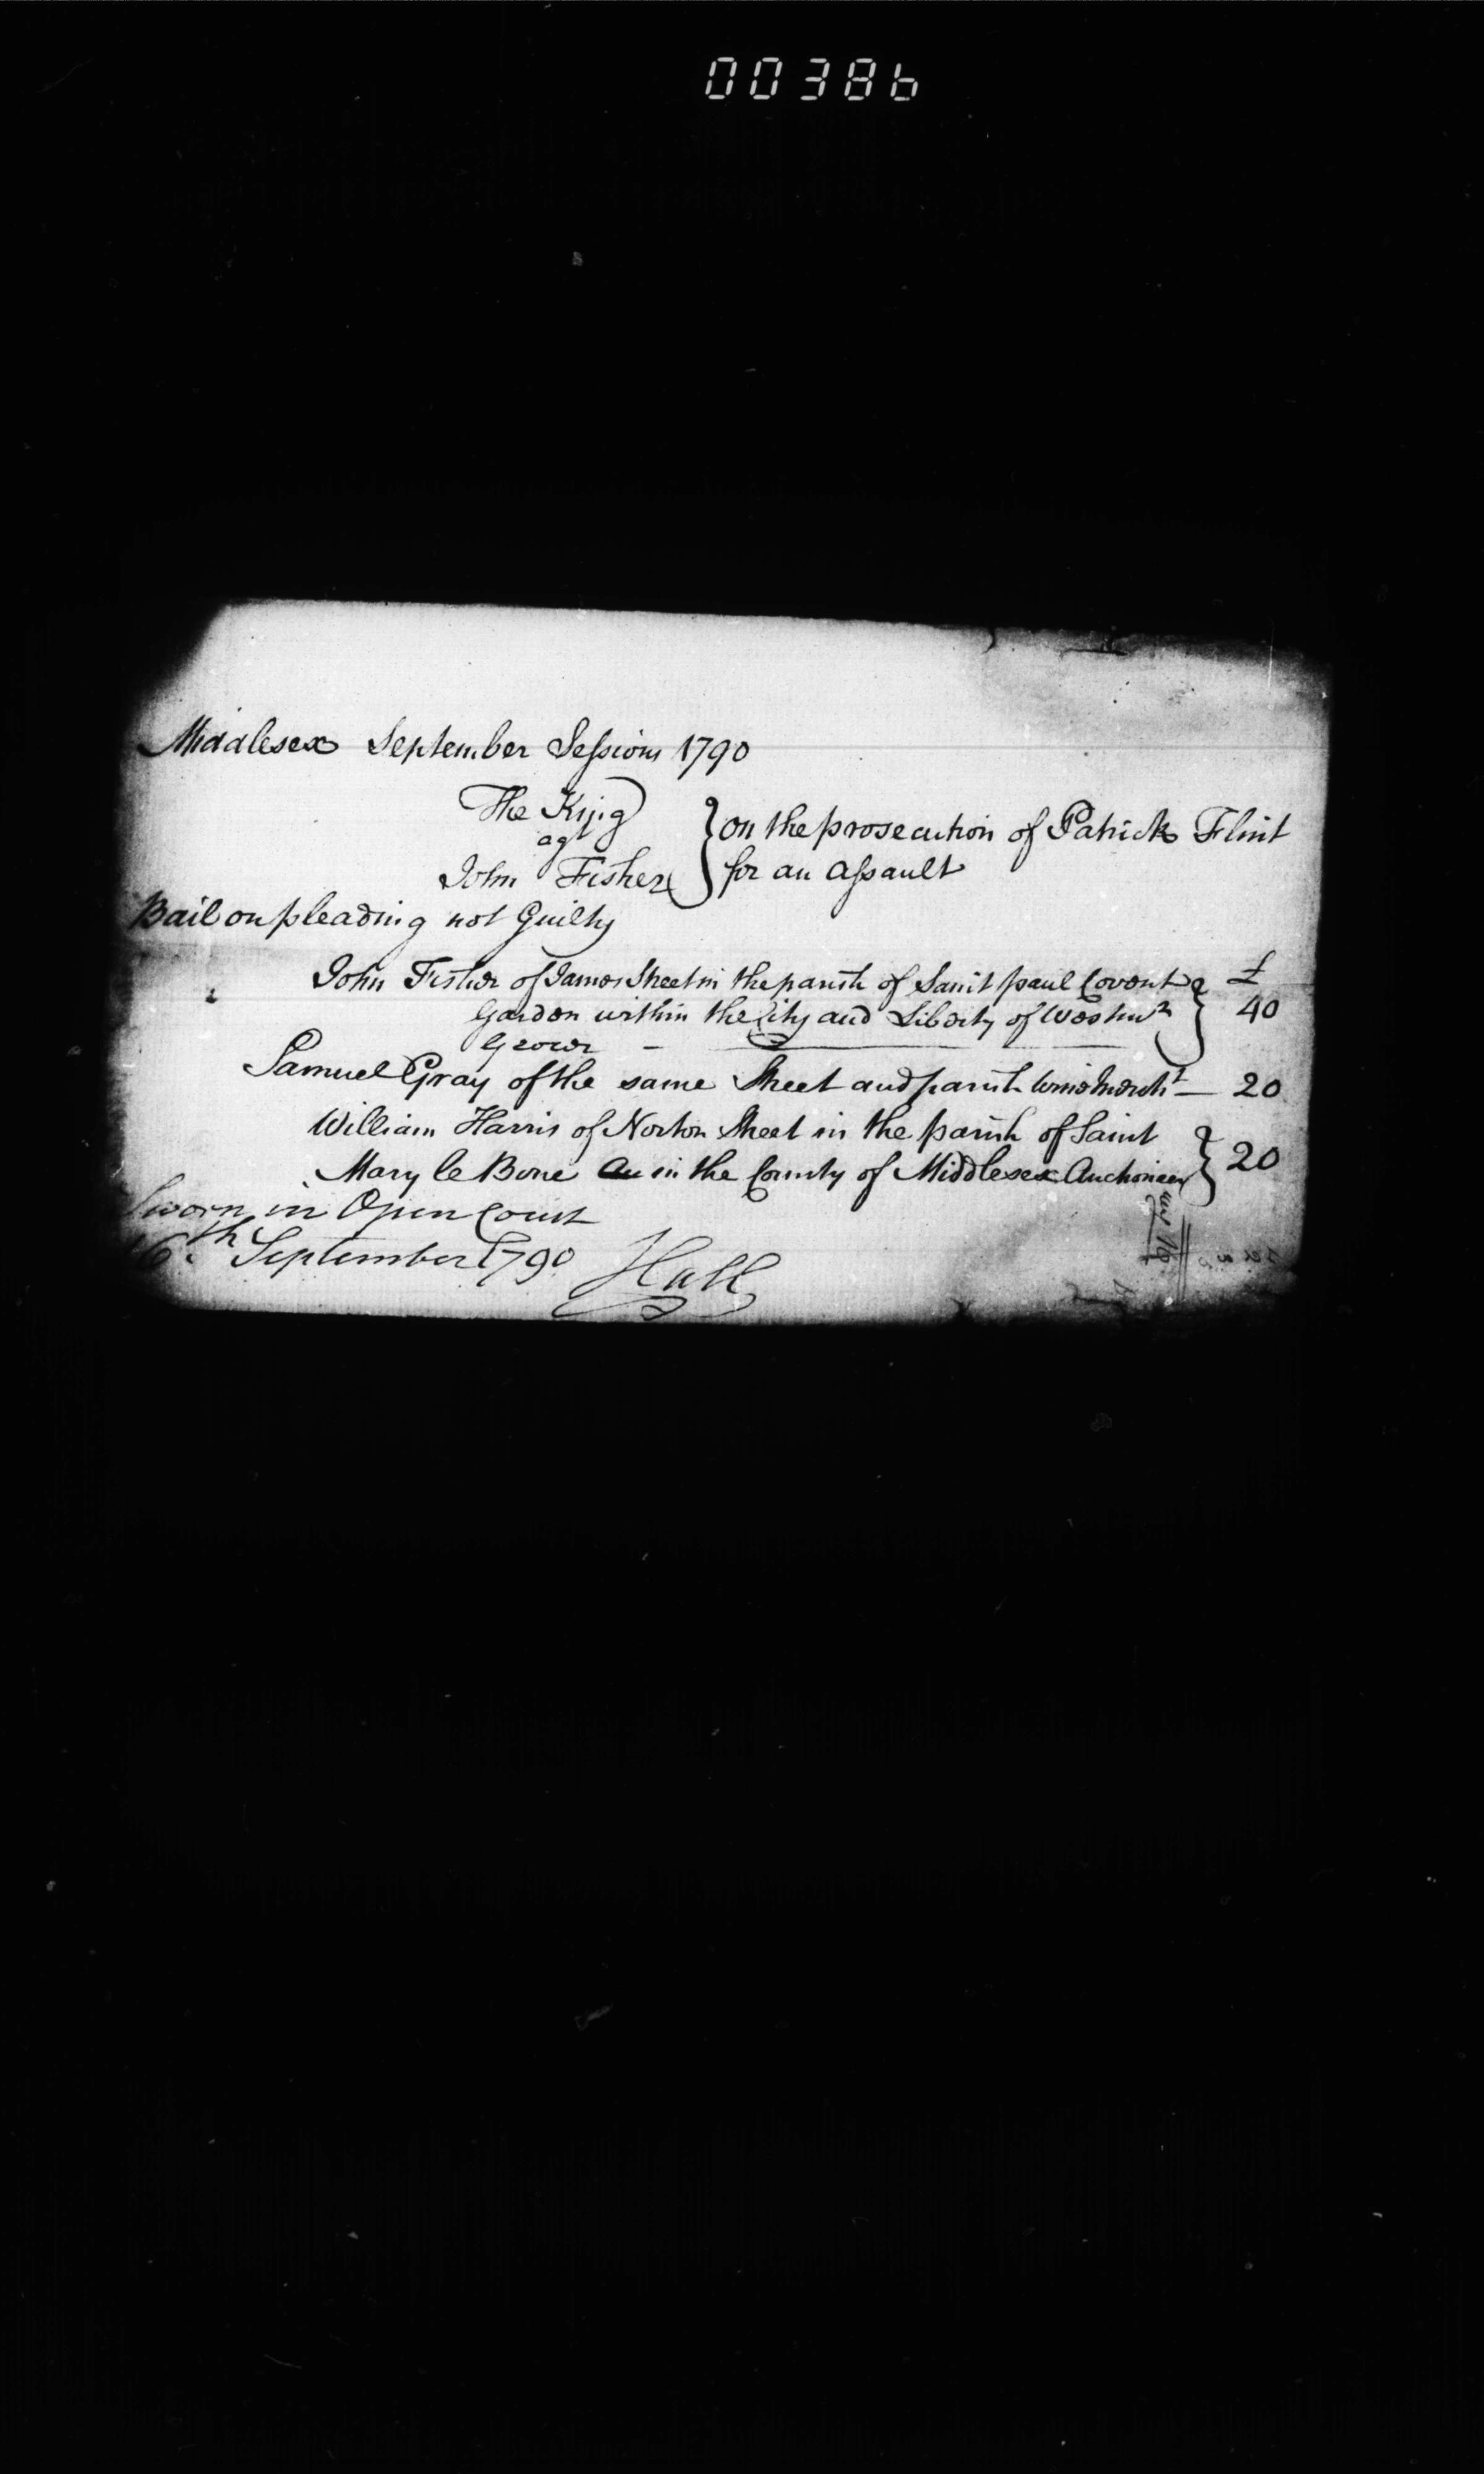 00386
Middlesex September Sessions 1790
The King
agt
John Fisher
} on the prosecution of Patrick Flint
for an assault
Bail on pleading not Guilty
John Fisher of James Street in the parish of Saint paul Covent } £
Garden within the City and Liberty of Westmr 40
Grocer —
Samuel Gray of the same Street and parish Winemercht — 20
William Harris of Norton Street in the parish of Saint
Mary le Bone Au in the County of Middlesex Auctioneer } 20
Sworn in Open Court
16th September 1790 Hall